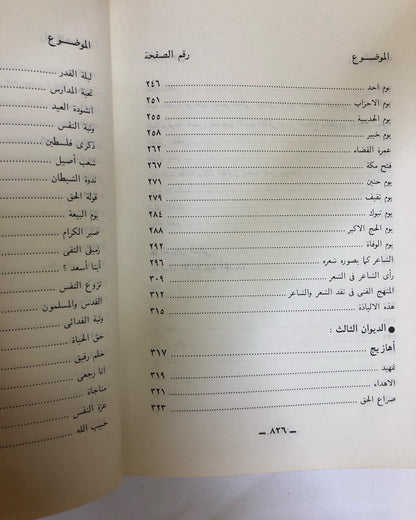 الموضـــوع رقم الصفحة
يوم احد ٢٤٦
يوم الاحزاب ٢٥١
يوم الحديبية ٢٥٥
يوم خيبر ٢٥٨
عمرة القضاء ٢٦٢
فتح مكة ٢٦٧
يوم حنين ٢٧١
يوم ثقيف ٢٧٩
يوم تبوك ٢٨٤
يوم الحج الاكبر ٢٨٨
يوم الوفاة ٢٩٢
الشاعر كما يصوره شعره ٢٩٦
رأى الشاعر فى الشعر ٣٠٩
المنهج الفنى فى نقد الشعر والشاعر ٣١٢
هذه الالياذة ٣١٥
● الديوان الثالث :
أهازيج ٣١٧
تمهيد ٣١٩
الاهداء ٣٢١
صراع الحق ٣٢٣
— ٨٢٦ —
الموضـــوع
ليلة القدر
تحية المدارس
انشودة العيد
وثبة النفس
ذكرى فلسطين
شعب أصيل
ندوة الشيطان
قولة الحق
يوم البيعة
صبر الكرام
زميلى التقى
أينا أسعد ؟
نزوع النفس
القدس والمسلمون
وثبة الفدائى
حق الحياة
حلم رفيق
انا رجعى
مناجاة
عزة النفس
حبيب الله